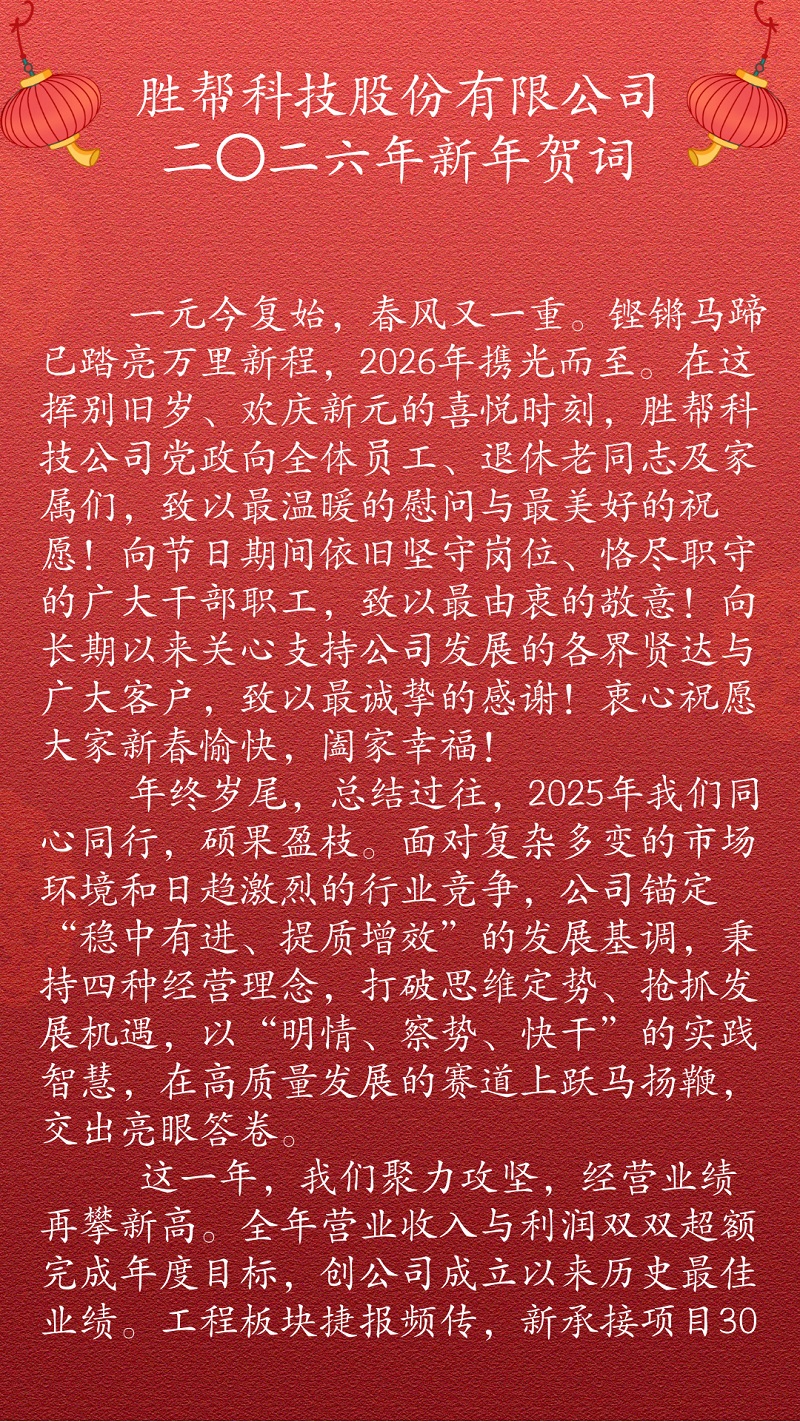 胜帮科技股份有限公司
二〇二六年新年贺词
一元今复始，春风又一重。铿锵马蹄
已踏亮万里新程，2026年携光而至。在这
挥别旧岁、欢庆新元的喜悦时刻，胜帮科
技公司党政向全体员工、退休老同志及家
属们，致以最温暖的慰问与最美好的祝
愿！向节日期间依旧坚守岗位、恪尽职守
的广大干部职工，致以最由衷的敬意！向
长期以来关心支持公司发展的各界贤达与
广大客户，致以最诚挚的感谢！衷心祝愿
大家新春愉快，阖家幸福！
年终岁尾，总结过往，2025年我们同
心同行，硕果盈枝。面对复杂多变的市场
环境和日趋激烈的行业竞争，公司锚定
“稳中有进、提质增效”的发展基调，秉
持四种经营理念，打破思维定势、抢抓发
展机遇，以“明情、察势、快干”的实践
智慧，在高质量发展的赛道上跃马扬鞭，
交出亮眼答卷。
这一年，我们聚力攻坚，经营业绩
再攀新高。全年营业收入与利润双双超额
完成年度目标，创公司成立以来历史最佳
业绩。工程板块捷报频传，新承接项目30